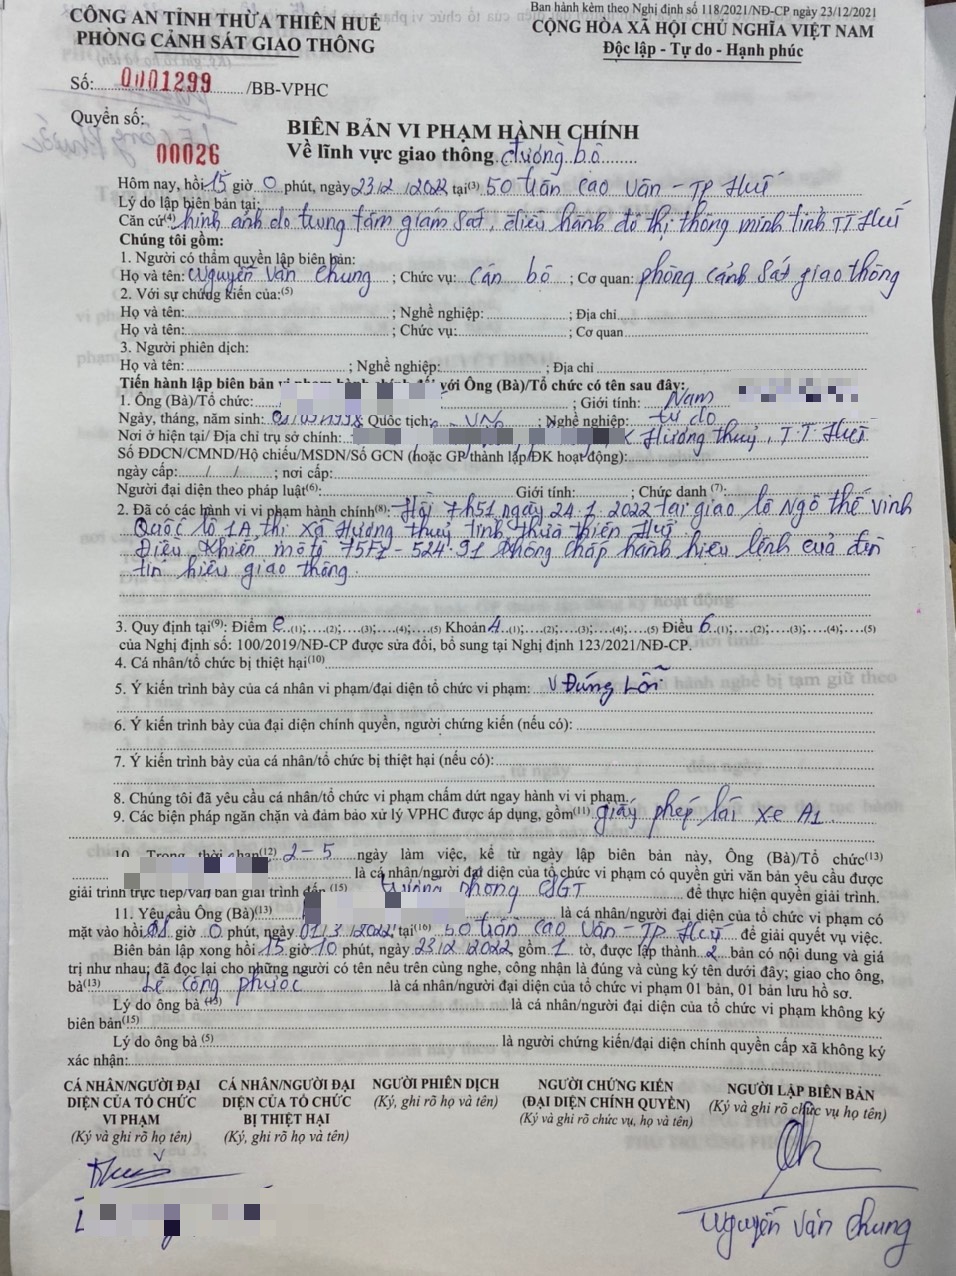 CÔNG AN TỈNH THỪA THIÊN HUẾ
PHÒNG CẢNH SÁT GIAO THÔNG
Ban hành kèm theo Nghị định số 118/2021/NĐ-CP ngày 23/12/2021
CỘNG HÒA XÃ HỘI CHỦ NGHĨA VIỆT NAM
Độc lập - Tự do - Hạnh phúc
Số: 0001299 /BB-VPHC
Quyển số: 00026
BIÊN BẢN VI PHẠM HÀNH CHÍNH
Về lĩnh vực giao thông đường bộ
Hôm nay, hồi 15 giờ 0 phút, ngày 23/2/2022 tại(3) 50 trần cao Vân - TP Huế
Lý do lập biên bản tại:
Căn cứ(4) hình ảnh do trung tâm giám sát, điều hành đô thị thông minh tỉnh TT Huế
Chúng tôi gồm:
1. Người có thẩm quyền lập biên bản:
Họ và tên: Nguyễn Văn Chung ; Chức vụ: Cán bộ ; Cơ quan: phòng cảnh sát giao thông
2. Với sự chứng kiến của:(5)
Họ và tên: ; Nghề nghiệp: ; Địa chỉ
Họ và tên: ; Chức vụ: ; Cơ quan
3. Người phiên dịch:
Họ và tên: ; Nghề nghiệp: ; Địa chỉ
Tiến hành lập biên bản với Ông (Bà)/Tổ chức có tên sau đây:
1. Ông (Bà)/Tổ chức: ; Giới tính: Nam
Ngày, tháng, năm sinh: Quốc tịch: VN ; Nghề nghiệp: tự do
Nơi ở hiện tại/ Địa chỉ trụ sở chính: Hương thuỷ, T.T Huế
Số ĐDCN/CMND/Hộ chiếu/MSDN/Số GCN (hoặc GP/thành lập/ĐK hoạt động):
ngày cấp: / / ; nơi cấp:
Người đại diện theo pháp luật(6): Giới tính: ; Chức danh (7):
2. Đã có các hành vi vi phạm hành chính(8): Hồi 7h51 ngày 24.1.2022 tại giao lộ Ngô thế vinh
Quốc lộ 1A, thị xã Hương thuỷ tỉnh thừa thiên Huế
Điều khiển môtô 75F1 - 524.91 không chấp hành hiệu lệnh của đèn
tín hiệu giao thông.
3. Quy định tại(9): Điểm e (1);....(2);....(3);....(4);....(5) Khoản 4 (1);....(2);....(3);....(4);....(5) Điều 6 (1);....(2);....(3);....(4);....(5)
của Nghị định số: 100/2019/NĐ-CP được sửa đổi, bổ sung tại Nghị định 123/2021/NĐ-CP.
4. Cá nhân/tổ chức bị thiệt hại(10)
5. Ý kiến trình bày của cá nhân vi phạm/đại diện tổ chức vi phạm: v Đúng Lỗi
6. Ý kiến trình bày của đại diện chính quyền, người chứng kiến (nếu có):
7. Ý kiến trình bày của cá nhân/tổ chức bị thiệt hại (nếu có):
8. Chúng tôi đã yêu cầu cá nhân/tổ chức vi phạm chấm dứt ngay hành vi vi phạm.
9. Các biện pháp ngăn chặn và đảm bảo xử lý VPHC được áp dụng, gồm(11) giấy phép lái xe A1
10. Trong thời hạn(12) 2-5 ngày làm việc, kể từ ngày lập biên bản này, Ông (Bà)/Tổ chức(13)
là cá nhân/người đại diện của tổ chức vi phạm có quyền gửi văn bản yêu cầu được
giải trình trực tiếp/văn bản giải trình đến (15) trưởng phòng CSGT để thực hiện quyền giải trình.
11. Yêu cầu Ông (Bà)(13) là cá nhân/người đại diện của tổ chức vi phạm có
mặt vào hồi 08 giờ 0 phút, ngày 01/3/2022, tại(16) 50 trần cao Vân - TP Huế để giải quyết vụ việc.
Biên bản lập xong hồi 15 giờ 10 phút, ngày 23/2/2022, gồm 1 tờ, được lập thành 2 bản có nội dung và giá
trị như nhau; đã đọc lại cho những người có tên nêu trên cùng nghe, công nhận là đúng và cùng ký tên dưới đây; giao cho ông,
bà(13) Lê Công phước là cá nhân/người đại diện của tổ chức vi phạm 01 bản, 01 bản lưu hồ sơ.
Lý do ông bà (13) là cá nhân/người đại diện của tổ chức vi phạm không ký
biên bản(15)
Lý do ông bà (5) là người chứng kiến/đại diện chính quyền cấp xã không ký
xác nhận:
CÁ NHÂN/NGƯỜI ĐẠI DIỆN CỦA TỔ CHỨC VI PHẠM
(Ký và ghi rõ họ tên)
CÁ NHÂN/NGƯỜI ĐẠI DIỆN CỦA TỔ CHỨC BỊ THIỆT HẠI
(Ký, ghi rõ họ và tên)
NGƯỜI PHIÊN DỊCH
(Ký, ghi rõ họ và tên)
NGƯỜI CHỨNG KIẾN
(ĐẠI DIỆN CHÍNH QUYỀN)
(Ký và ghi rõ chức vụ, họ và tên)
NGƯỜI LẬP BIÊN BẢN
(Ký và ghi rõ chức vụ họ tên)
Nguyễn Văn Chung